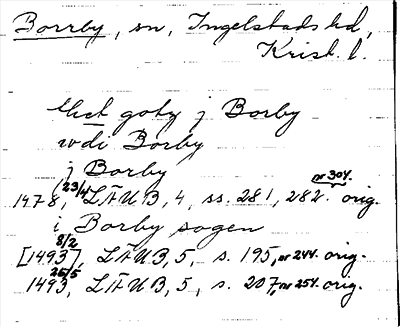 Borrby, sn, Ingelstads hd,
Krist. l.
Ekst gotz j Borby
wdi Borby
j Borby
1478, 23/4 LÄUB, 4, ss. 281, 282. nr 304. orig.
i Borby sogen
[1493] 8/2, LÄUB, 5, s. 195, nr 244. orig.
1493, 25/5, LÄUB, 5, s. 207, nr 254. orig.